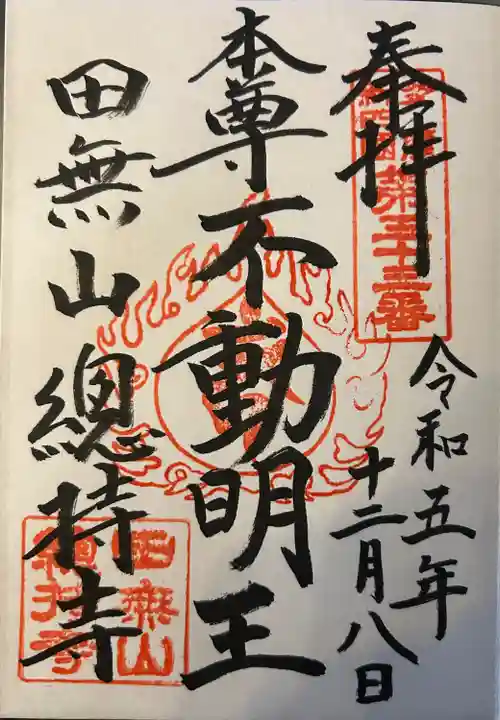 奉拝
第三十三番
令和五年
十二月八日
本尊不動明王
田無山總持寺
田無山
總持寺